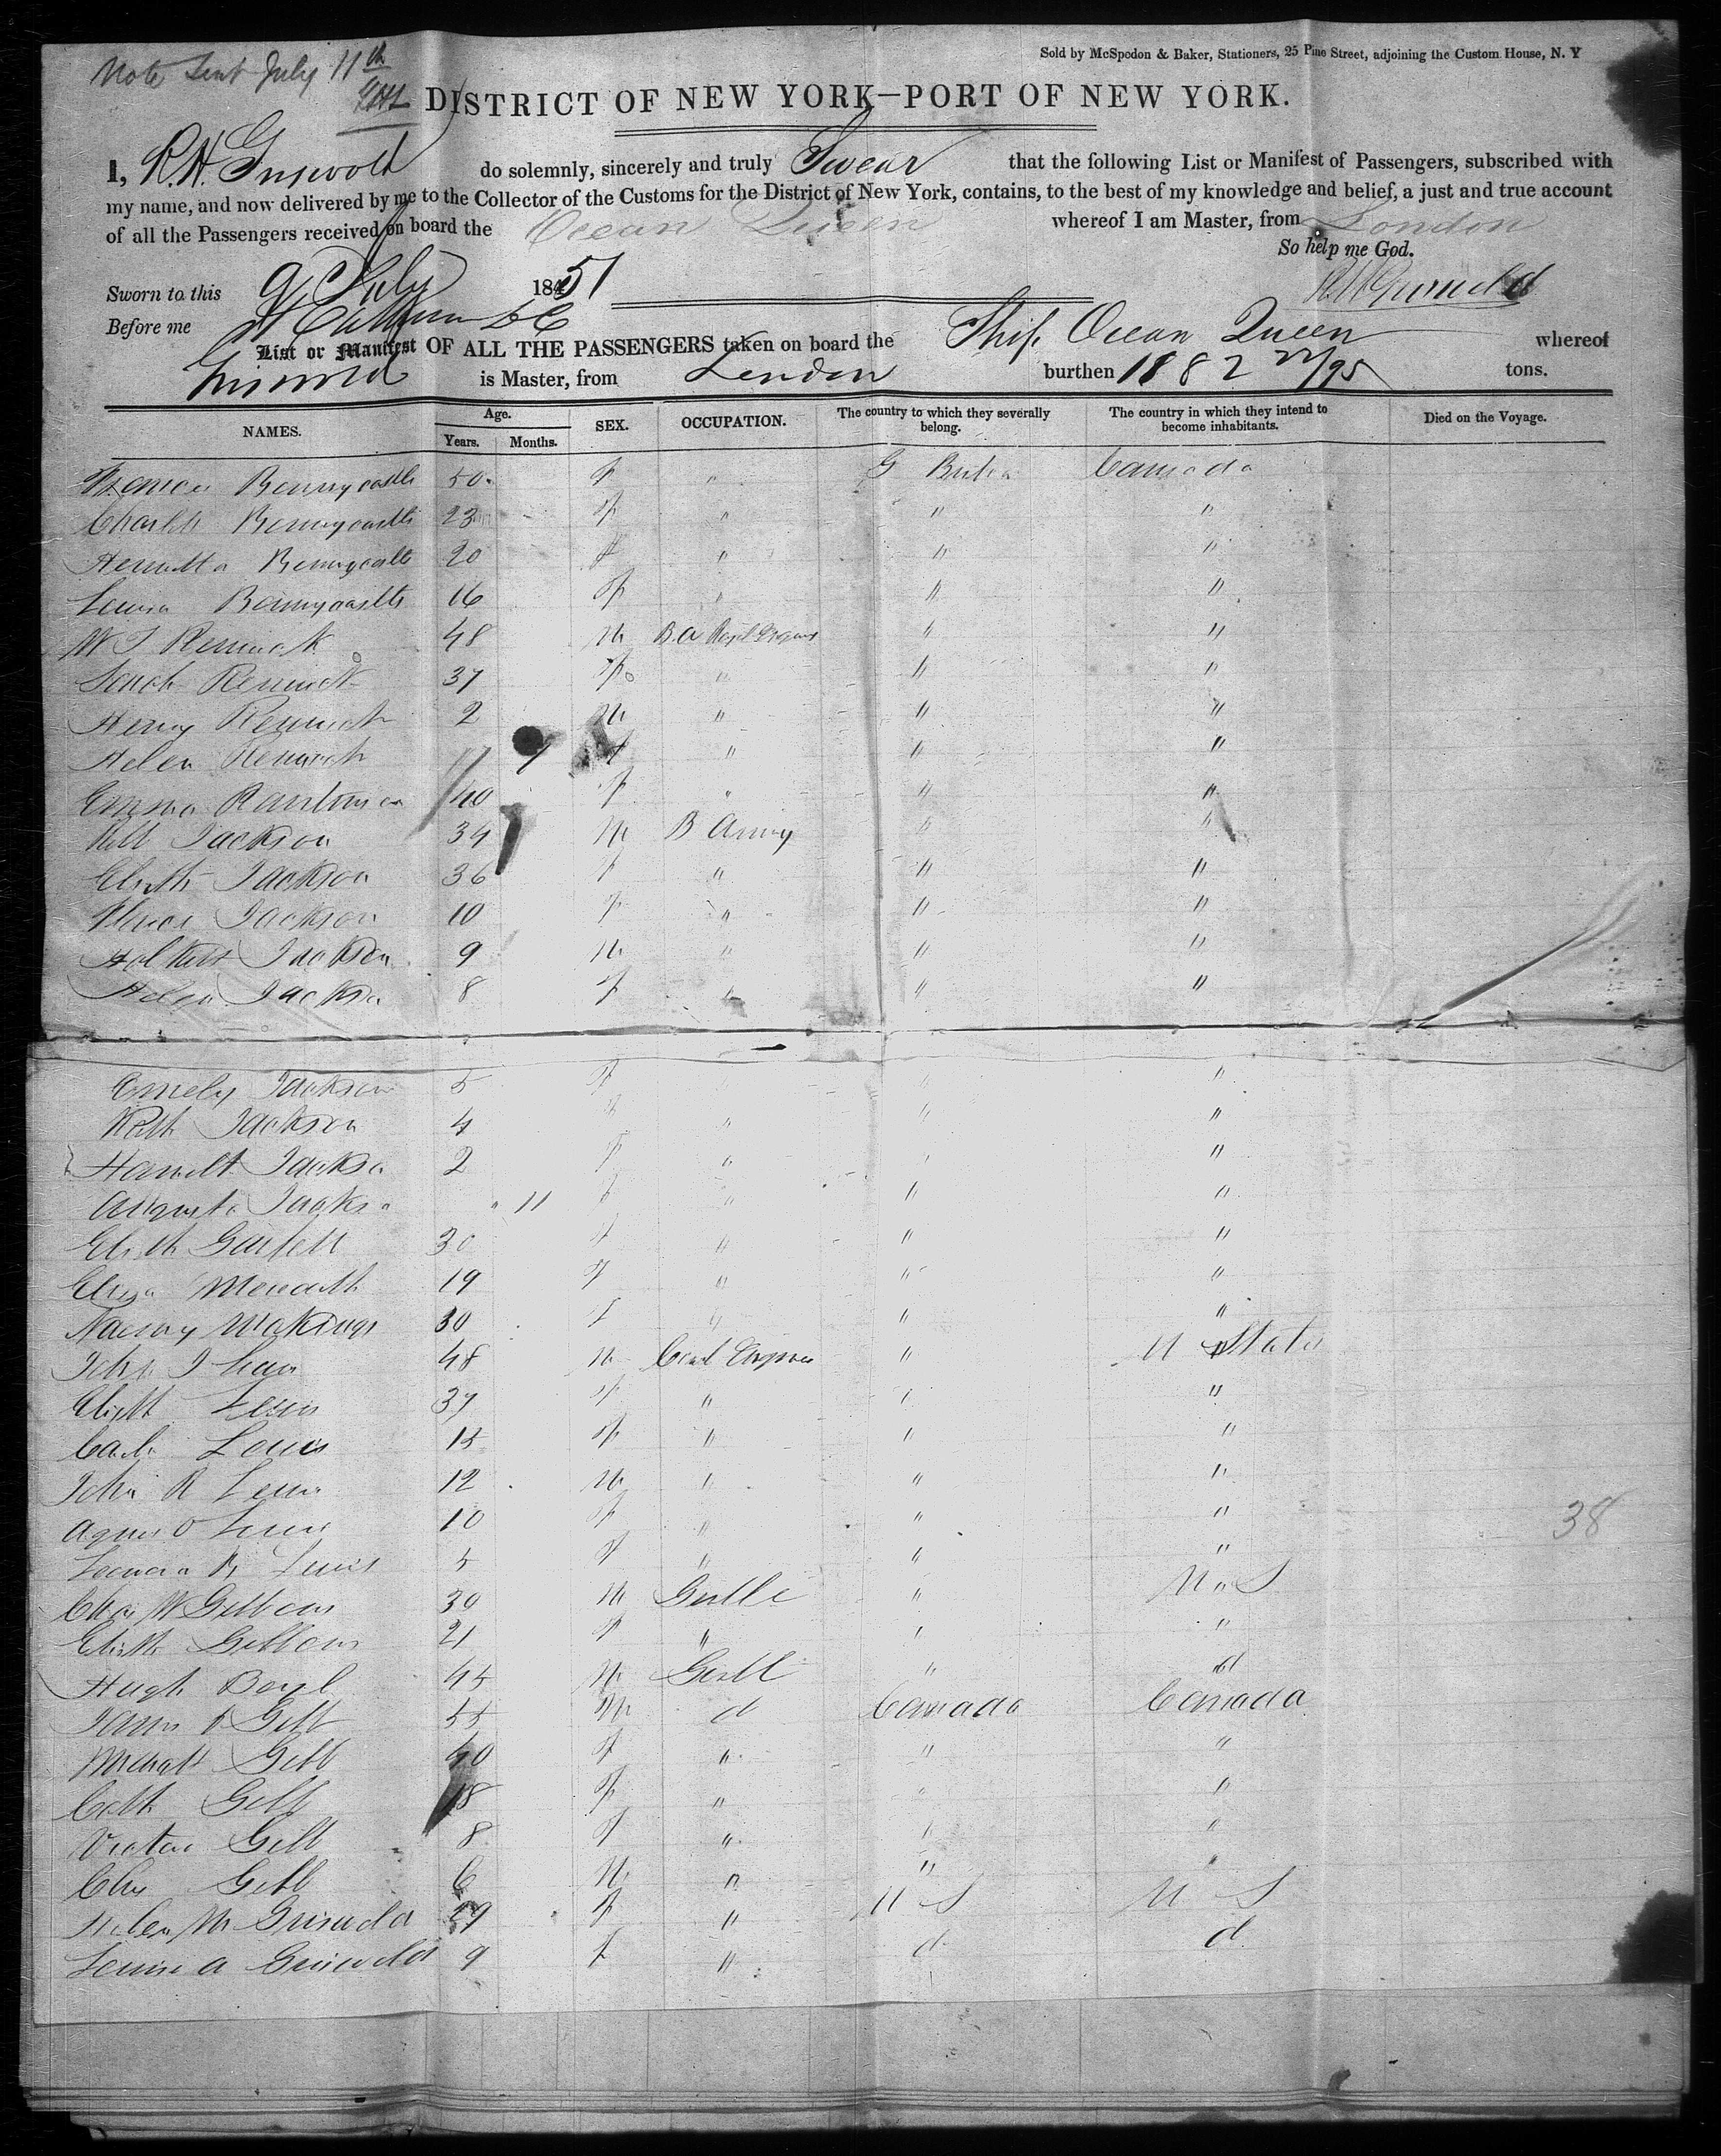 Note Sent July 11th
Sold by McSpedon & Baker, Stationers, 25 Pine Street, adjoining the Custom House, N. Y
DISTRICT OF NEW YORK—PORT OF NEW YORK.
I, R. H. Griswold do solemnly, sincerely and truly Swear that the following List or Manifest of Passengers, subscribed with
my name, and now delivered by me to the Collector of the Customs for the District of New York, contains, to the best of my knowledge and belief, a just and true account
of all the Passengers received on board the Ocean Queen whereof I am Master, from London
So help me God.
Sworn to this 9 July 1851 R H Griswold
Before me
List or Manifest OF ALL THE PASSENGERS taken on board the Ship Ocean Queen whereof
Griswold is Master, from London burthen 1182 22/95 tons.
NAMES. Age. SEX. OCCUPATION. The country to which they severally belong. The country in which they intend to become inhabitants. Died on the Voyage.
Years. Months.
Bonnycastle 50 f " G Britn Canada
Bonnycastle 23 f " " "
Henrietta Bonnycastle 20 f " " "
Louisa Bonnycastle 16 f " " "
W J Renwick 48 m " "
Sarah Renwick 37 f " " "
Henry Renwick 2 m " " "
Helen Renwick f " " "
Emma 40 f " " "
Jackson 34 m B Army " "
Elizth Jackson 36 f " " "
Jackson 10 f " " "
Jackson 9 m " " "
Helen Jackson 8 f " " "
Emely Jackson 5 f " " "
Kath Jackson 4 f " " "
Harriett Jackson 2 f " " "
Augusta Jackson " 11 f " " "
Elizth 30 f " " "
Eliza 19 f " " "
Makings 30 f " " "
John J 48 m Civil Engineer " U States
Elizth Lewis 37 f " " "
Lewis 15 f " " "
John R Lewis 12 m " " "
Agnes O Lewis 10 f " " "
Leonora R Lewis 5 f " " "
Chas W Gibbons 30 m Gentle " U S
Elizth Gibbons 21 f " " "
Hugh 45 m Gentl " d
James D Gibb 55 m d Canada Canada
Gibb 40 f " " "
Cath Gibb 18 f " " "
Victoria Gibb 8 f " " "
Chs Gibb 6 m " " "
Helen M Griswold 29 f " U S U S
Louise A Griswold 9 f " d d
38